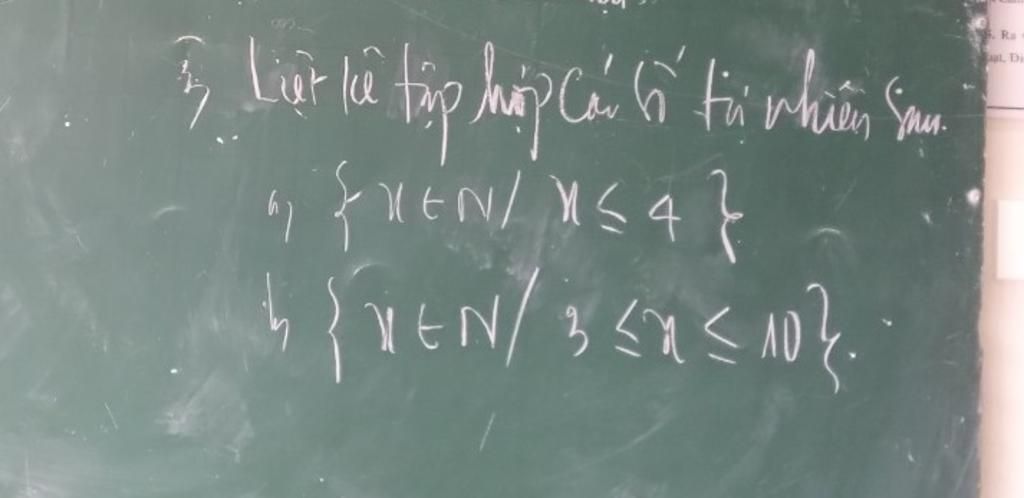 3) Liệt kê tập hợp các số tự nhiên sau.
a) { x ∈ N / x ≤ 4 }
b) { x ∈ N / 3 ≤ x ≤ 10 }.